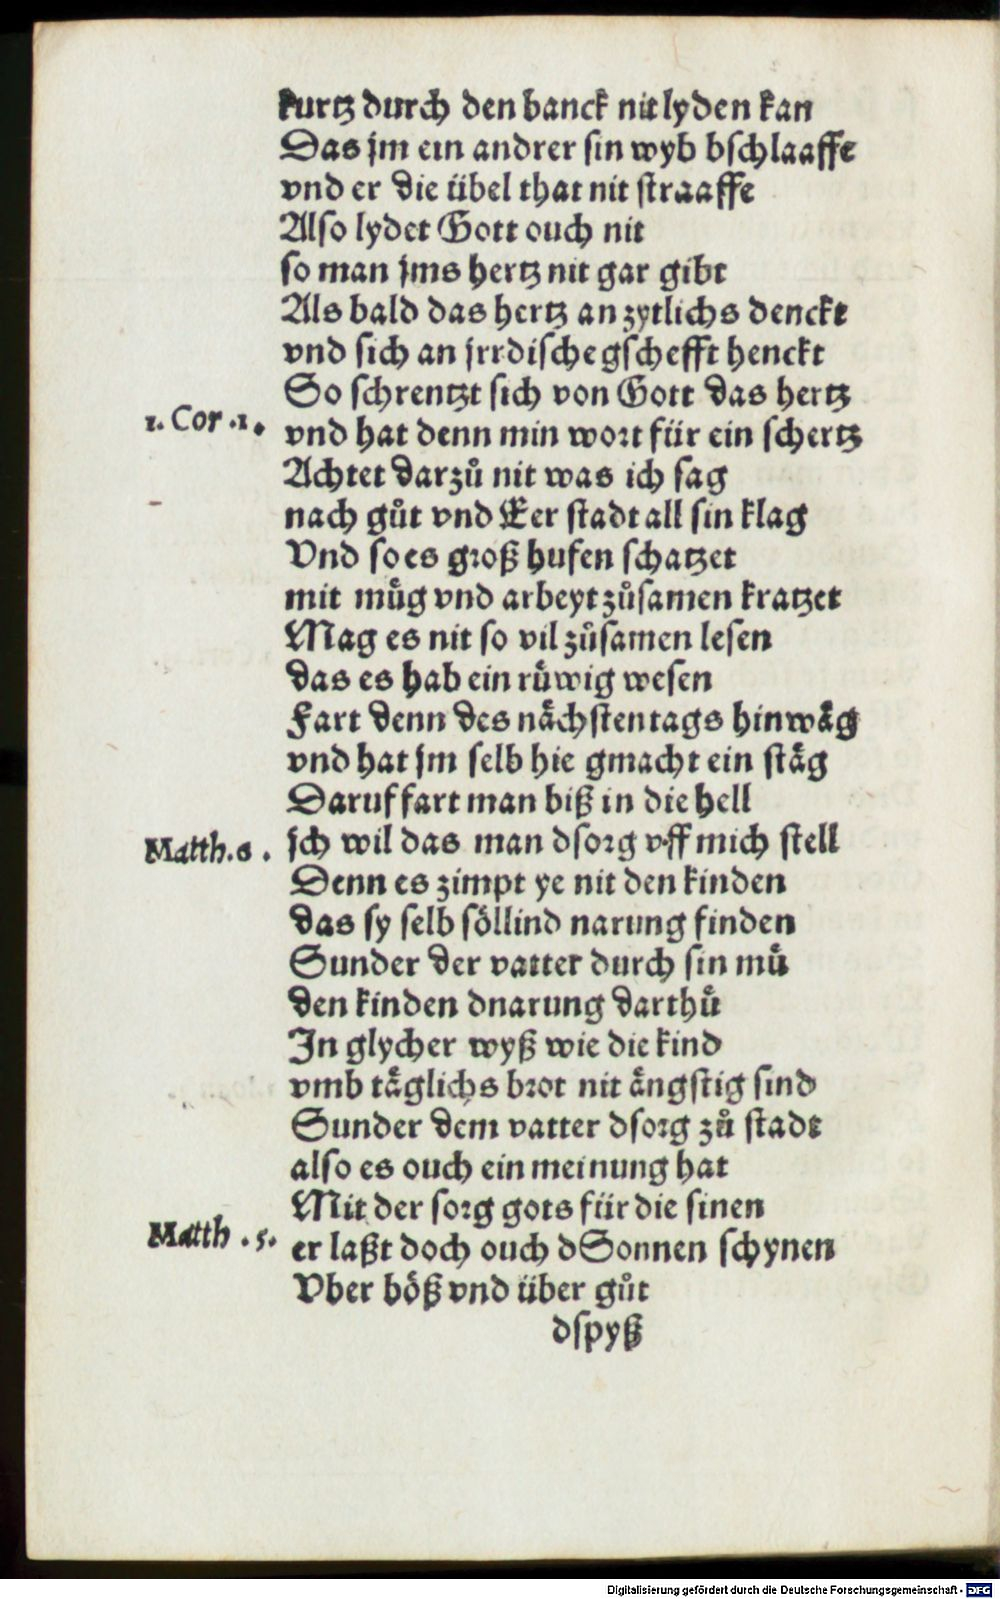 kurtz durch den banck nit lyden kan
Das jm ein andrer sin wyb bschlaaffe
vnd er die übel that nit straaffe
Also lydet Gott ouch nit
so man jms hertz nit gar gibt
Als bald das hertz an zytlichs denckt
vnd sich an jrrdische gschefft henckt
So schrentzt sich von Gott das hertz
1. Cor .1.
vnd hat denn min wort für ein schertz
Achtet darzů nit was ich sag
nach gůt vnd Eer stadt all sin klag
Vnd so es groß hufen schatzet
mit můg vnd arbeyt zůsamen kratzet
Mag es nit so vil zůsamen lesen
das es hab ein růwig wesen
Fart denn des nächstentags hinwäg
vnd hat jm selb hie gmacht ein stäg
Daruf fart man biß in die hell
Matth.6.
jch wil das man dsorg vff mich stell
Denn es zimpt ye nit den kinden
das sy selb söllind narung finden
Sunder der vatter durch sin mů
den kinden dnarung darthů
In glycher wyß wie die kind
vmb täglichs brot nit ängstig sind
Sunder dem vatter dsorg zů stadt
also es ouch ein meinung hat
Mit der sorg gots für die sinen
Matth .5.
er laßt doch ouch dSonnen schynen
Vber böß vnd über gůt
dspyß
Digitalisierung gefördert durch die Deutsche Forschungsgemeinschaft - DFG